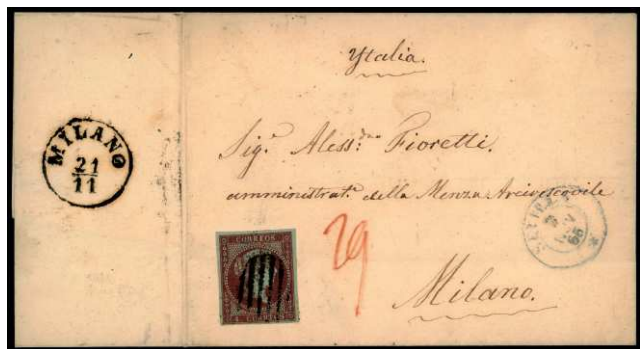 MILANO
21
11
Ytalia.
Sig.r Aless:dro Fioretti.
amministrat.e della Menza Arcivescovile
Milano.
29
CORREOS